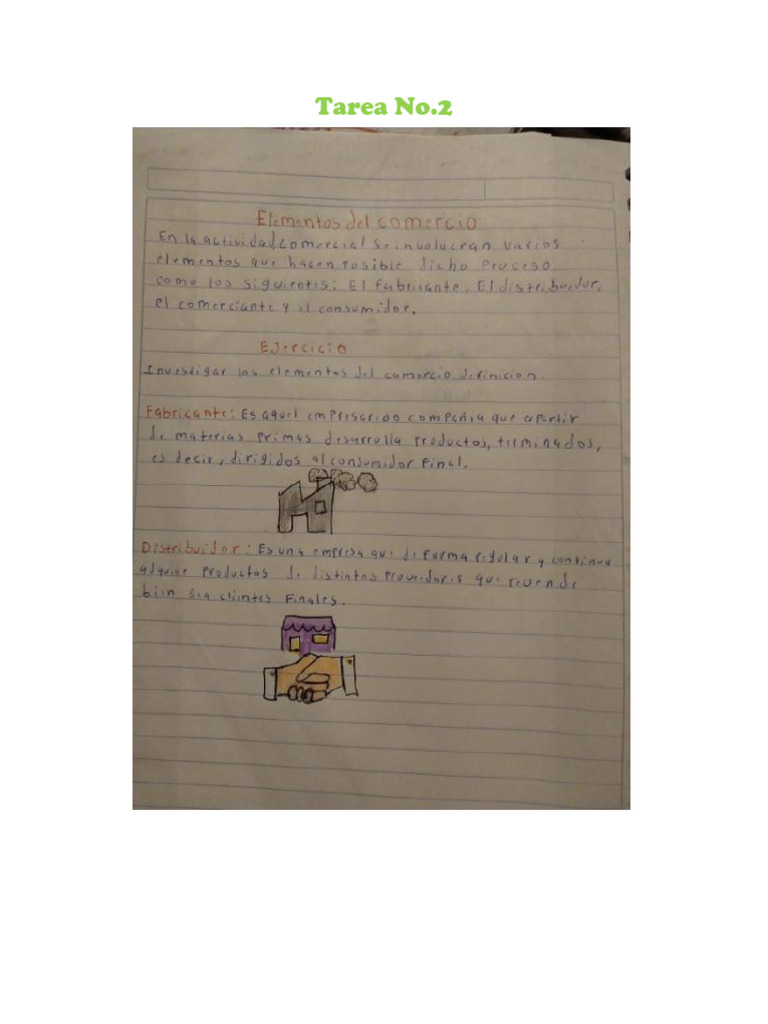 Tarea No.2
Elementos del comercio
En la actividad comercial se involucran varios
elementos que hacen posible dicho proceso
como los siguientes: El fabricante, El distribuidor,
el comerciante y el consumidor.
Ejercicio
Investigar los elementos del comercio definicion.
Fabricante: Es aquel empresario o compañia que apartir
de materias primas desarrolla productos, terminados,
es decir, dirigidos al consumidor final.
Distribuidor: Es una empresa que de forma regular y continua
adquiere productos de distintos proveedores que revende
bien sea clientes finales.